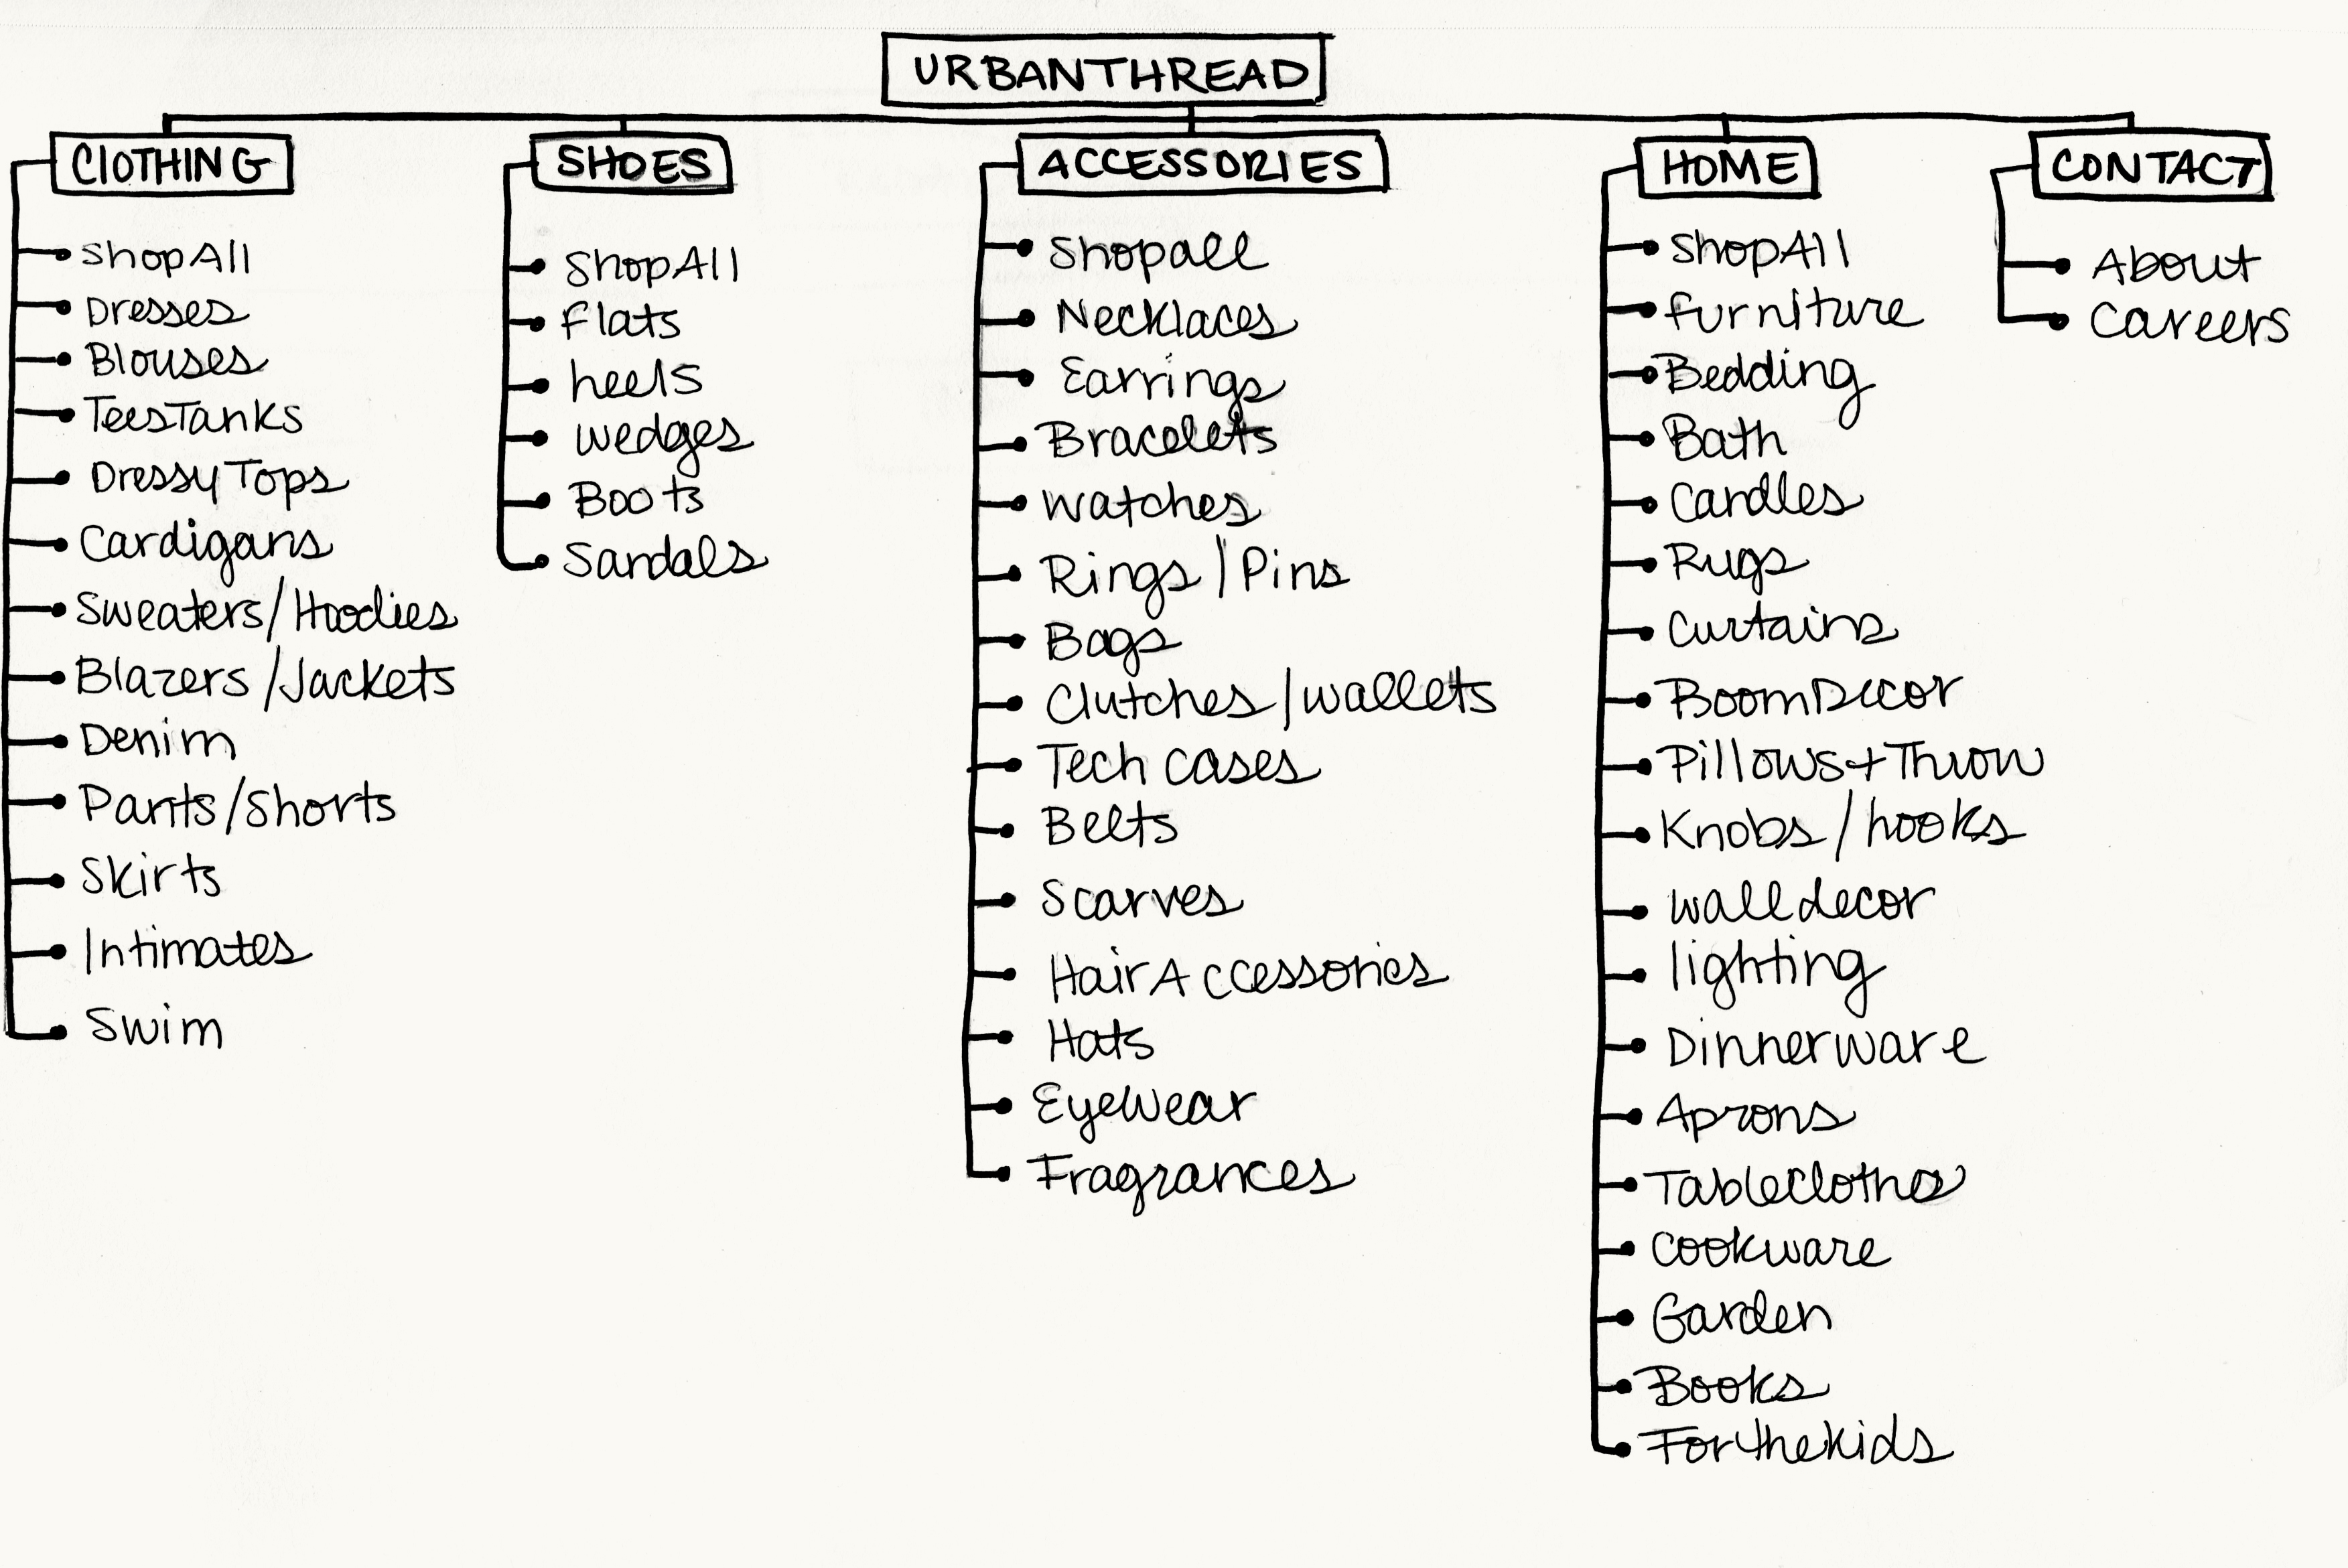 URBANTHREAD
CLOTHING
ShopAll
Dresses
Blouses
TeesTanks
Dressy Tops
Cardigans
Sweaters/Hoodies
Blazers/Jackets
Denim
Pants/Shorts
Skirts
Intimates
Swim
SHOES
ShopAll
flats
heels
wedges
Boots
Sandals
ACCESSORIES
Shopall
Necklaces
Earrings
Bracelets
Watches
Rings/Pins
Bags
Clutches/wallets
Tech cases
Belts
Scarves
Hair Accessories
Hats
Eyewear
Fragrances
HOME
ShopAll
furniture
Bedding
Bath
Candles
Rugs
Curtains
BoomDecor
Pillows+Throw
Knobs/hooks
walldecor
lighting
Dinnerware
Aprons
Tablecloths
Cookware
Garden
Books
Forthekids
CONTACT
About
Careers